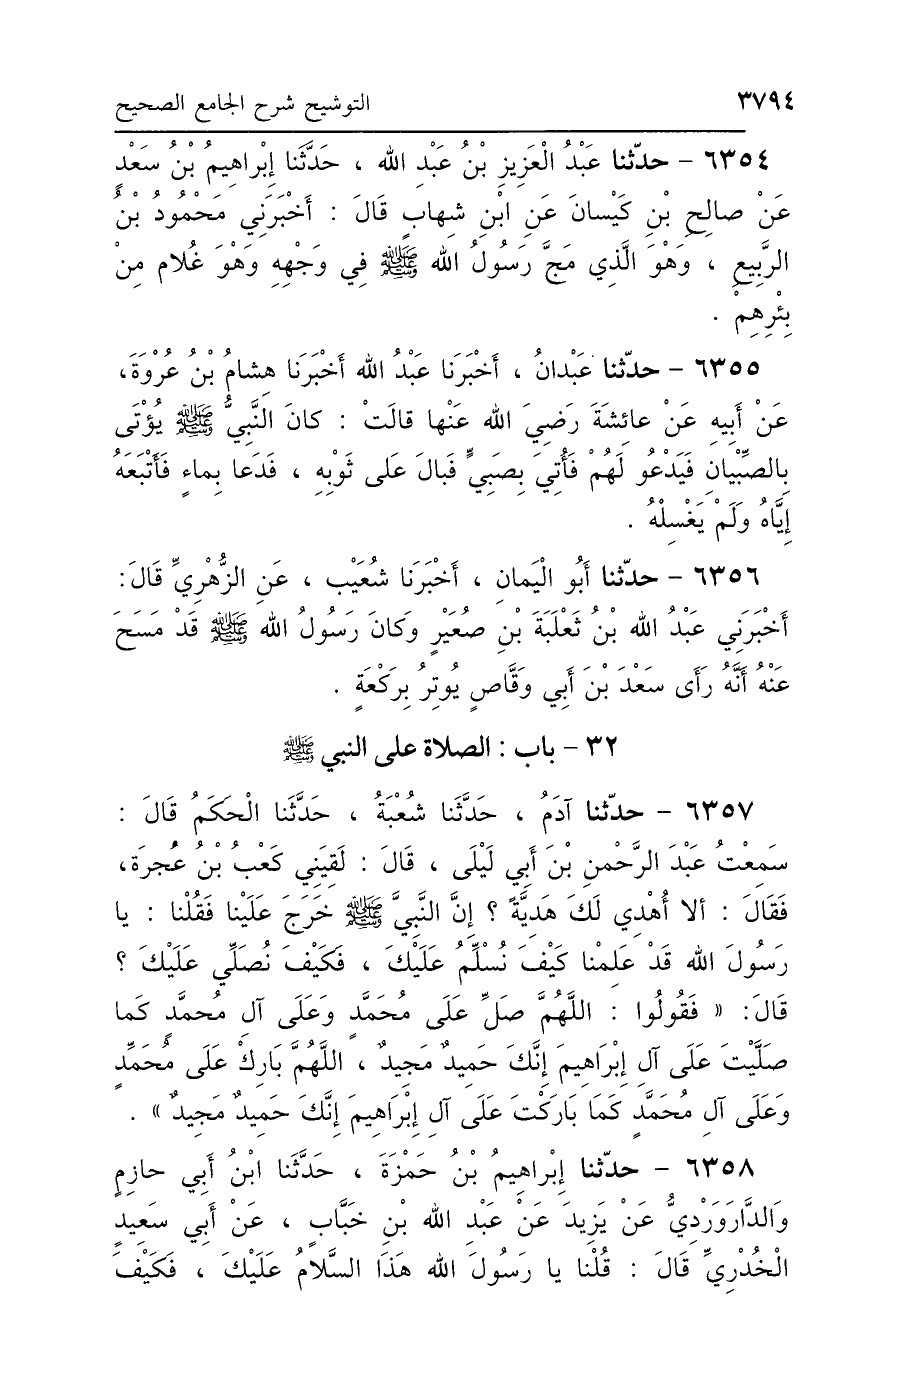 ٣٧٩٤ التوشيح شرح الجامع الصحيح
٦٣٥٤ – حدّثنا عَبْدُ الْعَزِيزِ بْنُ عَبْدِ الله ، حَدَّثَنا إِبْراهِيمُ بْنُ سَعْدٍ
عَنْ صالِحِ بْنِ كَيْسانَ عَنِ ابْنِ شهابٍ قَالَ : أَخْبَرَنِي مَحْمُودُ بْنُ
الرَّبِيعِ ، وَهْوَ الَّذِي مَجَّ رَسُولُ الله ﷺ فِي وَجْهِهِ وَهْوَ غُلام مِنْ
بِئْرِهِمْ .
٦٣٥٥ – حدّثنا عَبْدانُ ، أَخْبَرَنَا عَبْدُ الله أَخْبَرَنَا هِشامُ بْنُ عُرْوَةَ،
عَنْ أَبِيهِ عَنْ عائِشَةَ رَضِيَ الله عَنْها قالَتْ : كانَ النَّبِيُّ ﷺ يُؤْتَى
بِالصِّبْيانِ فَيَدْعُو لَهُمْ فَأُتِيَ بِصَبِيٍّ فَبالَ عَلى ثَوْبِهِ ، فَدَعا بِماءٍ فَأَتْبَعَهُ
إِيَّاهُ وَلَمْ يَغْسِلْهُ .
٦٣٥٦ – حدّثنا أَبُو الْيَمانِ ، أَخْبَرَنا شُعَيْب ، عَنِ الزُّهْرِيِّ قَالَ:
أَخْبَرَنِي عَبْدُ الله بْنُ ثَعْلَبَةَ بْنِ صُعَيْرٍ وَكانَ رَسُولُ الله ﷺ قَدْ مَسَحَ
عَنْهُ أَنَّهُ رَأَى سَعْدَ بْنَ أَبِي وَقَّاصٍ يُوتِرُ بِرَكْعَةٍ .
٣٢ – باب : الصلاة على النبي ﷺ
٦٣٥٧ – حدّثنا آدَمُ ، حَدَّثَنا شُعْبَةُ ، حَدَّثَنَا الْحَكَمُ قَالَ :
سَمِعْتُ عَبْدَ الرَّحْمنِ بْنَ أَبِي لَيْلَى ، قَالَ : لَقِيَنِي كَعْبُ بْنُ عُجرَةَ،
فَقَالَ : ألا أُهْدِي لَكَ هَدِيَّةً ؟ إِنَّ النَّبِيَّ ﷺ خَرَجَ عَلَيْنا فَقُلْنا : يا
رَسُولَ الله قَدْ عَلِمْنا كَيْفَ نُسْلِّمُ عَلَيْكَ ، فَكَيْفَ نُصَلِّي عَلَيْكَ ؟
قَالَ: « فَقُولُوا : اللَّهُمَّ صَلِّ عَلَى مُحَمَّدٍ وَعَلَى آلِ مُحمدٍ كَما
صَلَّيْتَ عَلَى آلِ إِبْرَاهِيمَ إِنَّكَ حَمِيدٌ مَجِيدٌ ، اللَّهُمَّ بَارِكْ عَلَى مُحَمَّدٍ
وَعَلَى آلِ مُحَمَّدٍ كَمَا بَارَكْتَ عَلَى آلِ إِبْرَاهِيمَ إِنَّكَ حَمِيدٌ مَجِيدٌ » .
٦٣٥٨ – حدّثنا إِبْراهِيمُ بْنُ حَمْزَةَ ، حَدَّثَنا ابْنُ أَبِي حازِمٍ
وَالدَّارَوَرْدِيُّ عَنْ يَزِيدَ عَنْ عَبْدِ الله بْنِ خَبَّابٍ ، عَنْ أَبِي سَعِيدٍ
الْخُدْرِيِّ قَالَ : قُلْنا يا رَسُولَ الله هَذَا السَّلامُ عَلَيْكَ ، فَكَيْفَ